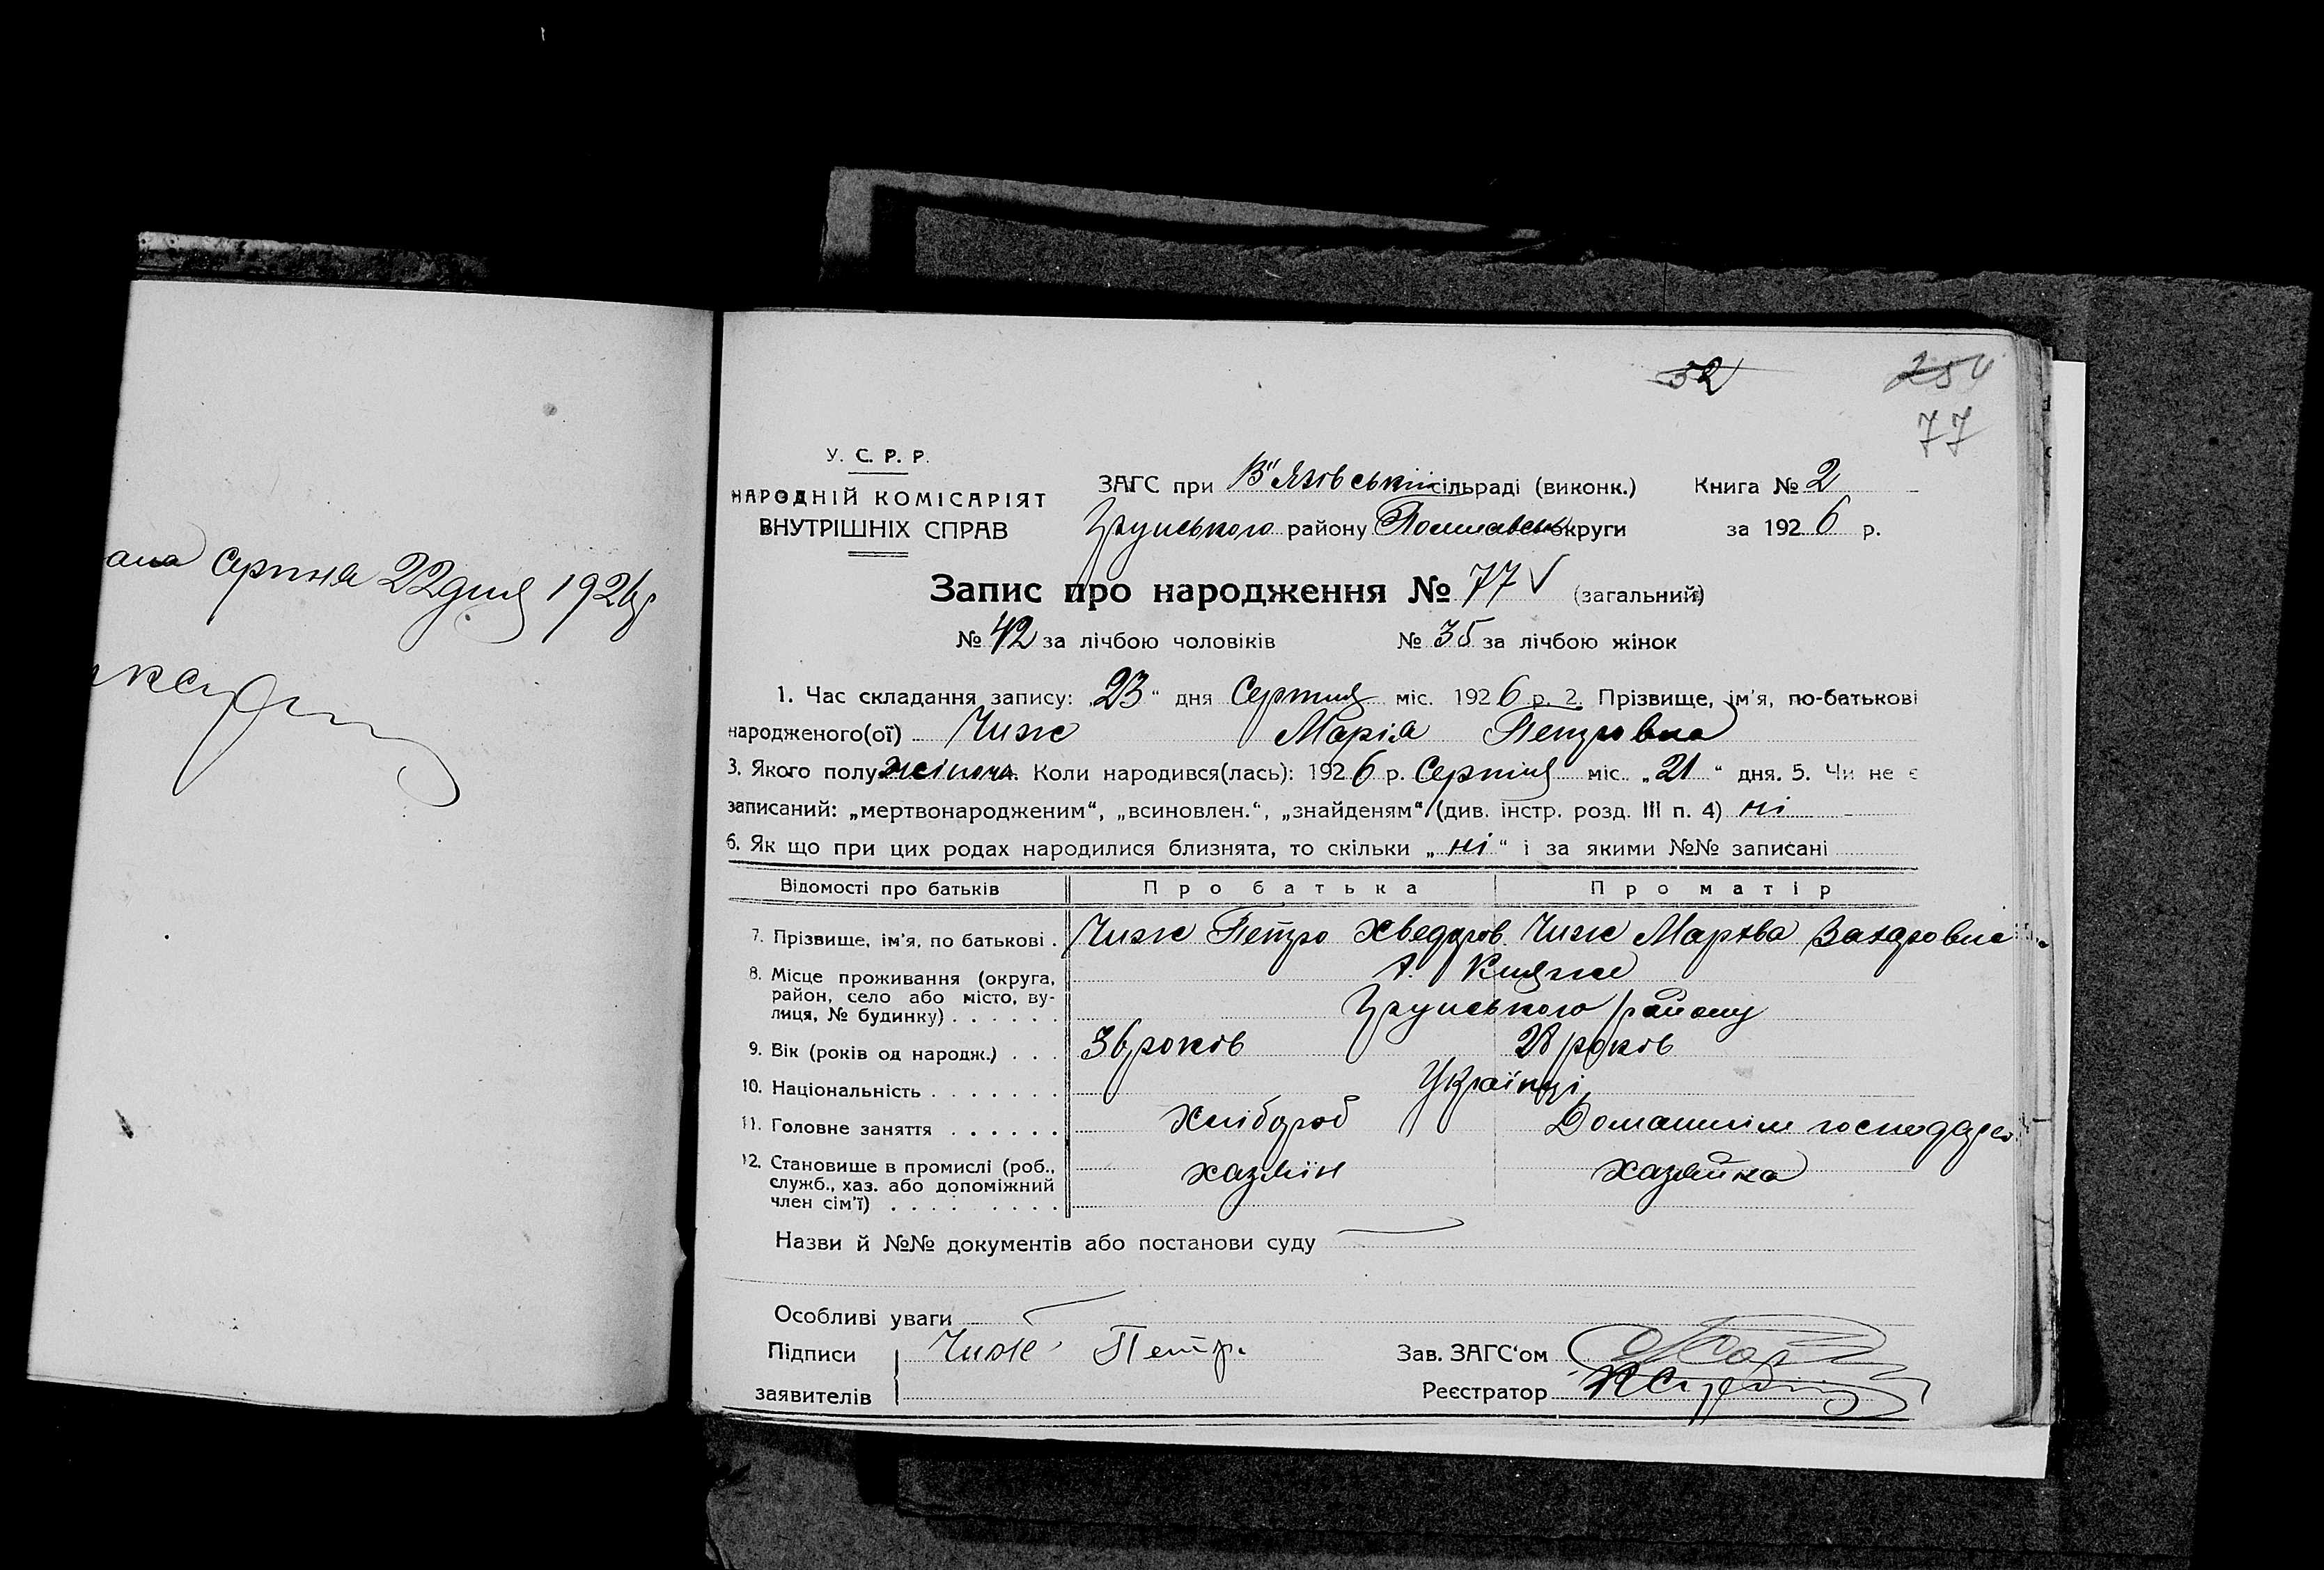 ана серпня 22 дня 1926 р
52
254
77
У. С. Р. Р.
НАРОДНІЙ КОМІСАРІЯТ
ВНУТРІШНІХ СПРАВ
ЗАГС при В'язівській сільраді (виконк.) Книга № 2
Грунського району Полтавськ округи за 1926 р.
Запис про народження № 77 (загальний)
№ 42 за лічбою чоловіків № 35 за лічбою жінок
1. Час складання запису: „23“ дня Серпня міс. 1926 р. 2. Прізвище, ім'я, по-батькові
народженого(ої) Чиж Марія Петровна
3. Якого полу жіноч. Коли народився(лась): 1926 р. Серпня міс. „21“ дня. 5. Чи не є
записаний: „мертвонародженим“, „всиновлен.“, „знайденям“ (див. інстр. розд. III п. 4) ні
6. Як що при цих родах народилися близнята, то скільки „ні“ і за якими №№ записані
Відомості про батьків Про батька Про матір
7. Прізвище, ім'я, по батькові . Чиж Петро Хведоров. Чиж Мархва Захаровна
8. Місце проживання (округа,
район, село або місто, вулиця, № будинку) . . . . . . Грунського району
9. Вік (років од народж.) . . . 36 років 28 років
10. Національність . . . . . . . Українці
11. Головне заняття . . . . . . Хлібороб Домашнім господарс
12. Становище в промислі (роб.,
служб., хаз. або допоміжний
член сім'ї) . . . . . . . . . хазяїн хазяйка
Назви й №№ документів або постанови суду
Особливі уваги
Підписи Чиж Петр.
заявителів
Зав. ЗАГС'ом
Реєстратор